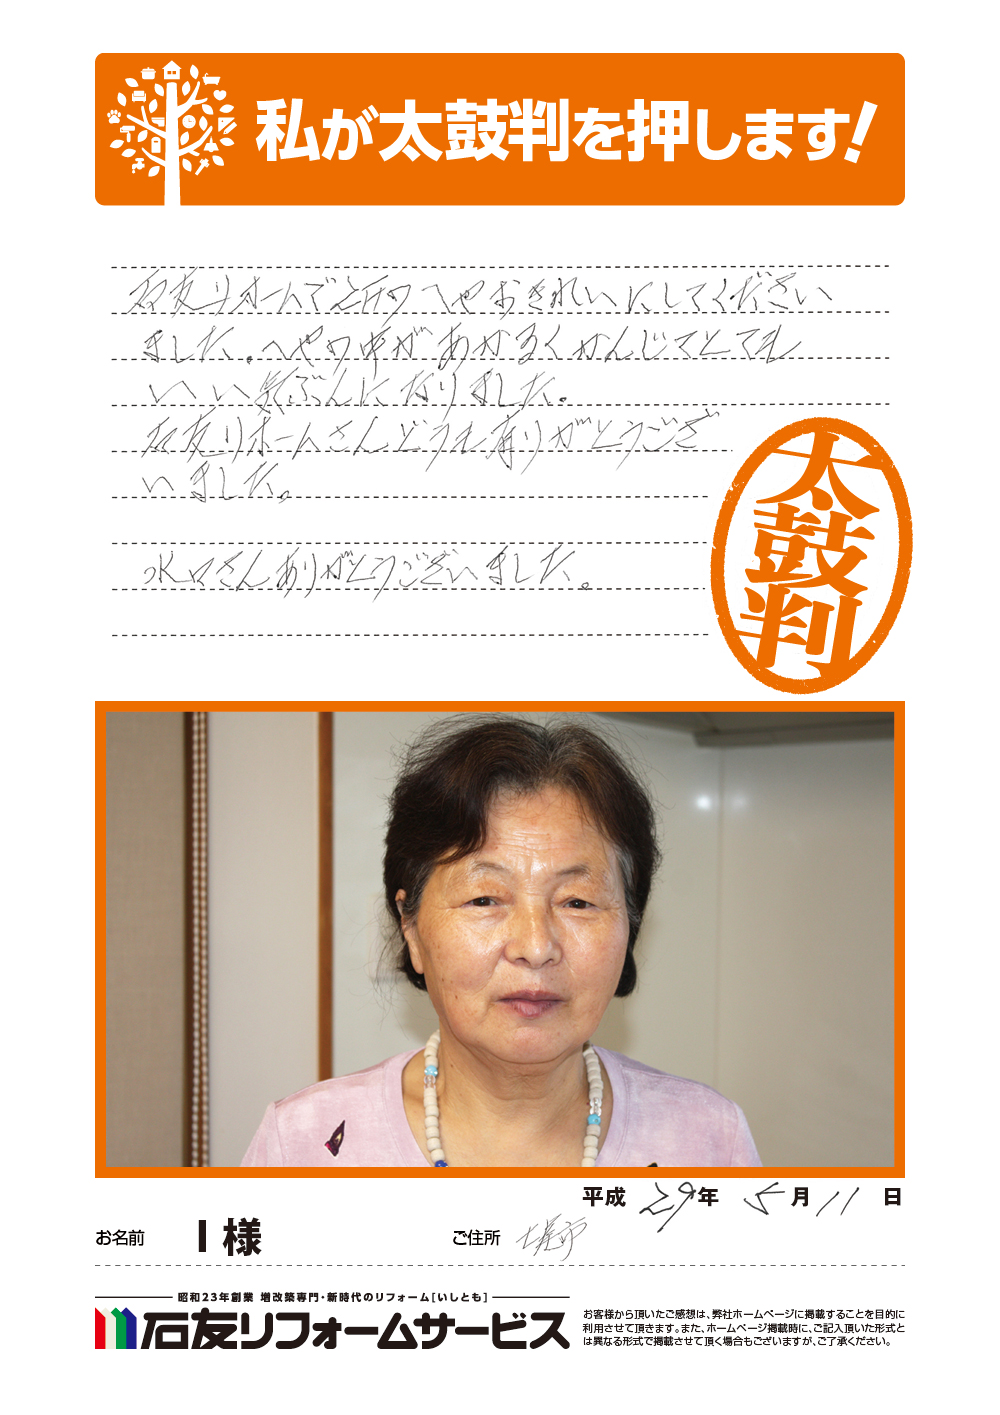 私が太鼓判を押します!
石友リホームで台所のへやおきれいにしてください
ました。へやの中があかるくかんじてとても
いい気ぶんになりました。
石友リホームさんどうも有りがとうござ
いました。
水口さんありがとうございました。
太鼓判
平成 29年 5月 11日
お名前 I 様
ご住所 市
昭和23年創業 増改築専門・新時代のリフォーム[いしとも]
石友リフォームサービス
お客様から頂いたご感想は、弊社ホームページに掲載することを目的に
利用させて頂きます。また、ホームページ掲載時に、ご記入頂いた形式と
は異なる形式で掲載させて頂く場合もございますが、ご了承ください。